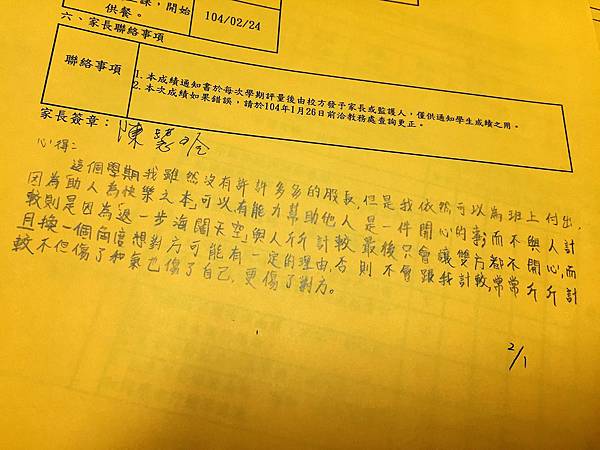 課，開始
供餐。
104/02/24
六、家長聯絡事項
聯絡事項
1. 本成績通知書於每次學期評量後由校方發予家長或監護人，僅供通知學生成績之用。
2. 本次成績如果錯誤，請於104年1月26日前洽教務處查詢更正。
家長簽章：陳
心得：
這個學期我雖然沒有許許多多的股長，但是我依然可以為班上付出，
因為助人為快樂之本」可以有能力幫助他人是一件開心的事，而不與人計
較則是因為「退一步海闊天空」與人斤斤計較最後只會讓雙方都不開心，而
且換一個角度想對方可能有一定的理由，否則不會跟我計較，常常斤斤計
較不但傷了和氣也傷了自己，更傷了對方。
2/1